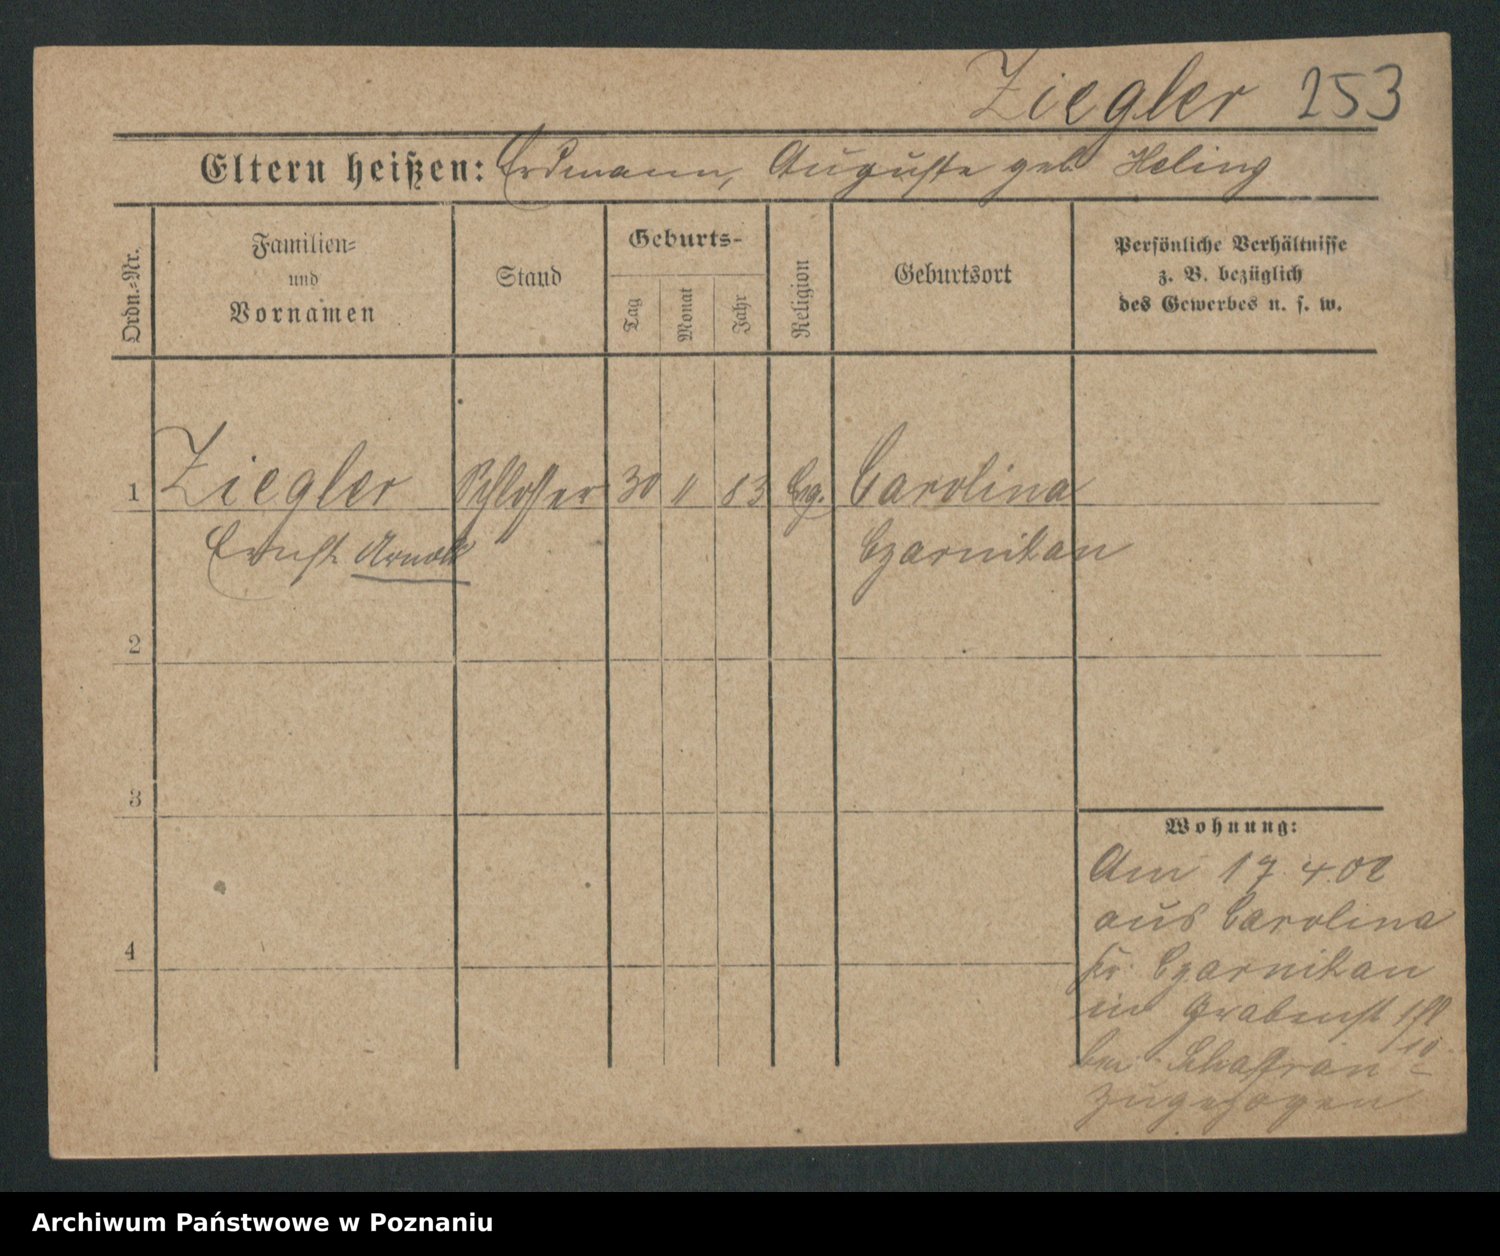 Ziegler 253
Eltern heißen: Erdmann, Auguste geb Heling
Ordn.-Nr.
Familien-
und
Vornamen
Stand
Geburts-
Tag
Monat
Jahr
Religion
Geburtsort
Persönliche Verhältnisse
z. B. bezüglich
des Gewerbes u. s. w.
1 Ziegler Schlosser 30 11 83 Evg. Carolina
Ernst Arnold Czarnikau
2
3
4
Wohnung:
Am 17 4.02
aus Carolina
Kr. Czarnikau
in Grabenst
bei Schaffran
zugezogen
Archiwum Państwowe w Poznaniu